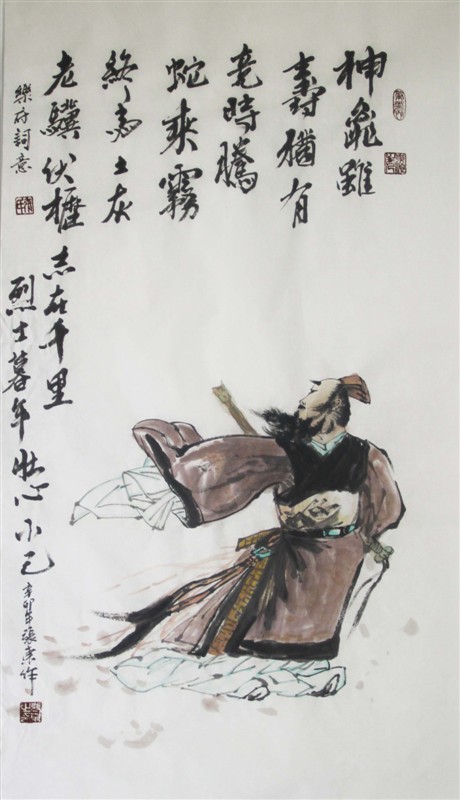 神龜雖
壽猶有
竟時騰
蛇乘霧
終為土灰
老驥伏櫪志在千里
烈士暮年壯心不已
樂府詞意
辛卯年張作